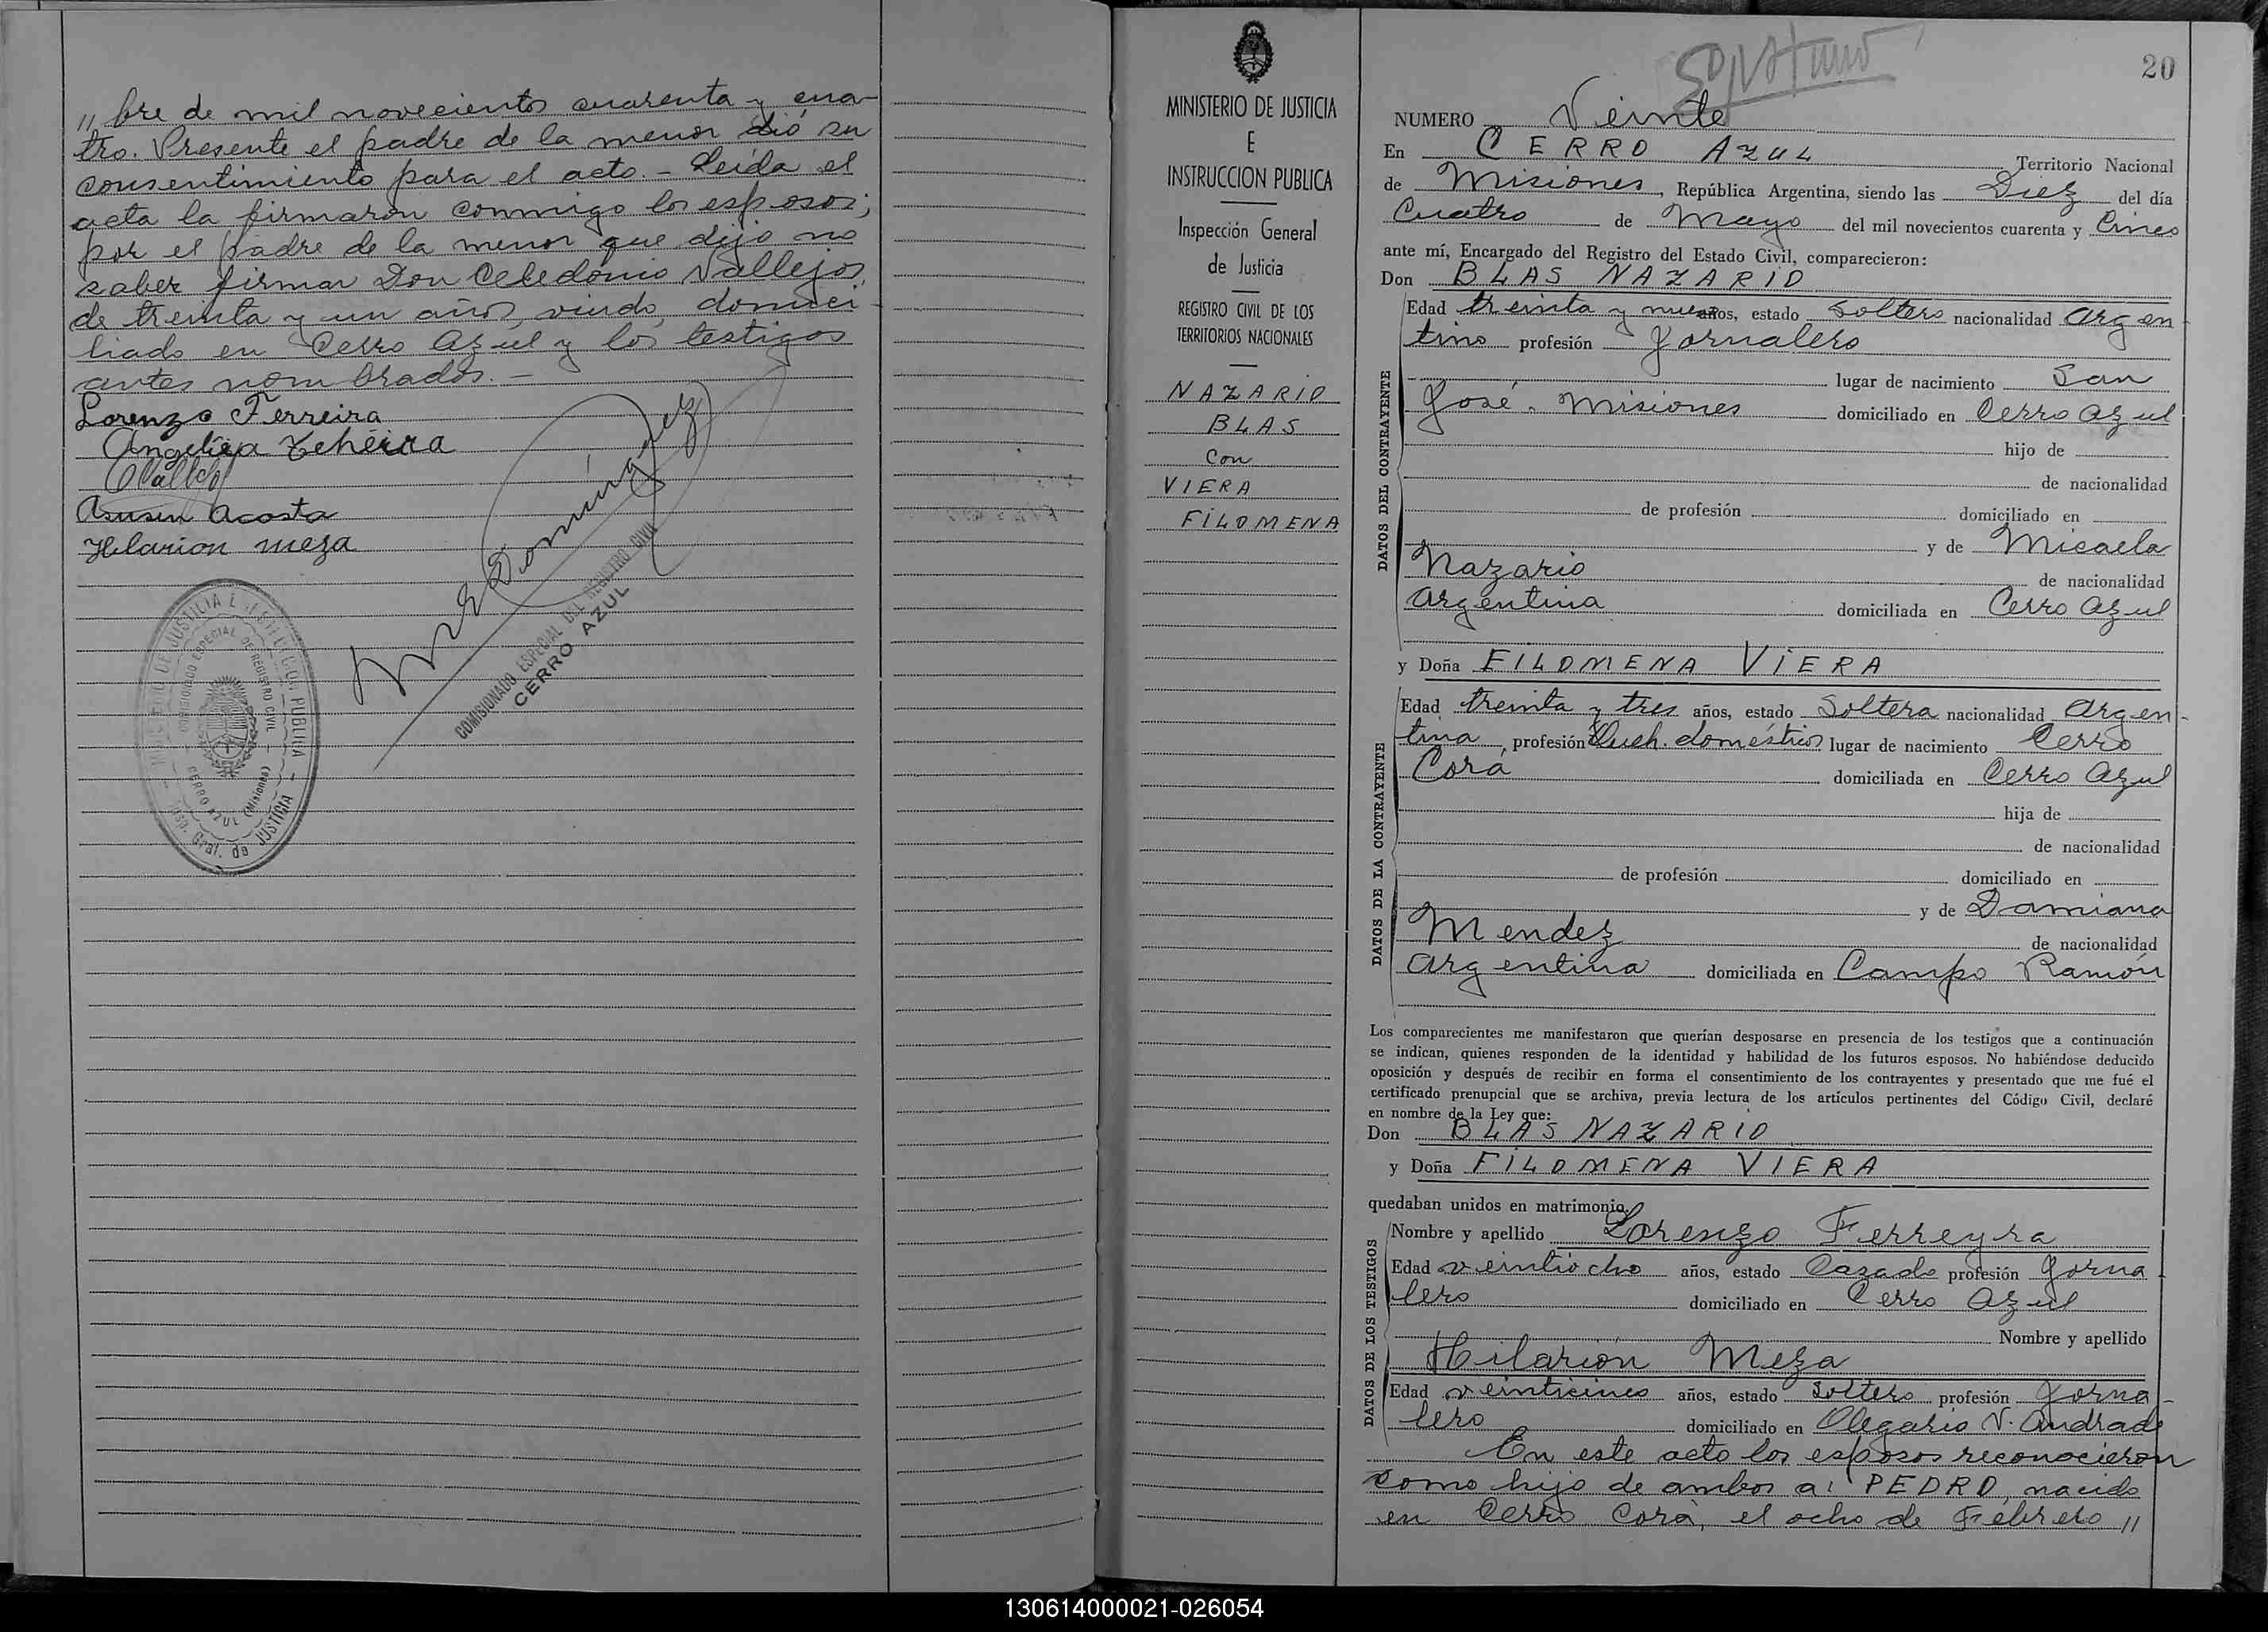 " bre de mil novecientos cuarenta y cua-
tro. Presente el padre de la menor dió su
consentimiento para el acto. - Leída el
acta la firmaron conmigo los esposos;
por el padre de la menor que dijo no
saber firmar Don Celedonio Vallejos,
de treinta y un años, viudo, domici-
liado en Cerro Azul y los testigos
antes nombrados. -
Lorenzo Ferreira
Angelica
CVallejos
Acosta
Hilarion meza
Domínguez
COMISIONADO ESPECIAL DEL REGISTRO CIVIL
CERRO AZUL
MINISTERIO DE JUSTICIA E INSTRUCCION PUBLICA
COMISIONADO ESPECIAL DE REGISTRO CIVIL
CERRO AZUL (Misiones)
Insp. Gral. de JUSTICIA
MINISTERIO DE JUSTICIA
E
INSTRUCCION PUBLICA
Inspección General
de Justicia
REGISTRO CIVIL DE LOS
TERRITORIOS NACIONALES
NAZARIO
BLAS
Con
VIERA
FILOMENA
20
NUMERO Veinte
En CERRO AZUL Territorio Nacional
de Misiones, República Argentina, siendo las Diez del día
Cuatro de Mayo del mil novecientos cuarenta y Cinco
ante mí, Encargado del Registro del Estado Civil, comparecieron:
Don BLAS NAZARIO
DATOS DEL CONTRAYENTE
Edad treinta y nueve años, estado Soltero nacionalidad Argen-
tino profesión Jornalero
lugar de nacimiento San
José. Misiones domiciliado en Cerro Azul
hijo de
de nacionalidad
de profesión domiciliado en
y de Micaela
Nazario de nacionalidad
Argentina domiciliada en Cerro Azul
y Doña FILOMENA VIERA
DATOS DE LA CONTRAYENTE
Edad treinta y tres años, estado Soltera nacionalidad Argen-
tina, profesión Queh. domésticos lugar de nacimiento Cerro
Corá domiciliada en Cerro Azul
hija de
de nacionalidad
de profesión domiciliado en
y de Damiana
Mendez de nacionalidad
Argentina domiciliada en Campo Ramón
Los comparecientes me manifestaron que querían desposarse en presencia de los testigos que a continuación
se indican, quienes responden de la identidad y habilidad de los futuros esposos. No habiéndose deducido
oposición y después de recibir en forma el consentimiento de los contrayentes y presentado que me fué el
certificado prenupcial que se archiva, previa lectura de los artículos pertinentes del Código Civil, declaré
en nombre de la Ley que:
Don BLAS NAZARIO
y Doña FILOMENA VIERA
quedaban unidos en matrimonio.
DATOS DE LOS TESTIGOS
Nombre y apellido Lorenzo Ferreyra
Edad veintiocho años, estado Cazado profesión Jorna-
lero domiciliado en Cerro Azul
Nombre y apellido
Hilarión Meza
Edad veinticinco años, estado soltero profesión Jorna-
lero domiciliado en Olegario V. Andrade
En este acto los esposos reconocieron
como hijo de ambos a: PEDRO, nacido
en Cerro Corá, el ocho de Febrero "
130614000021-026054